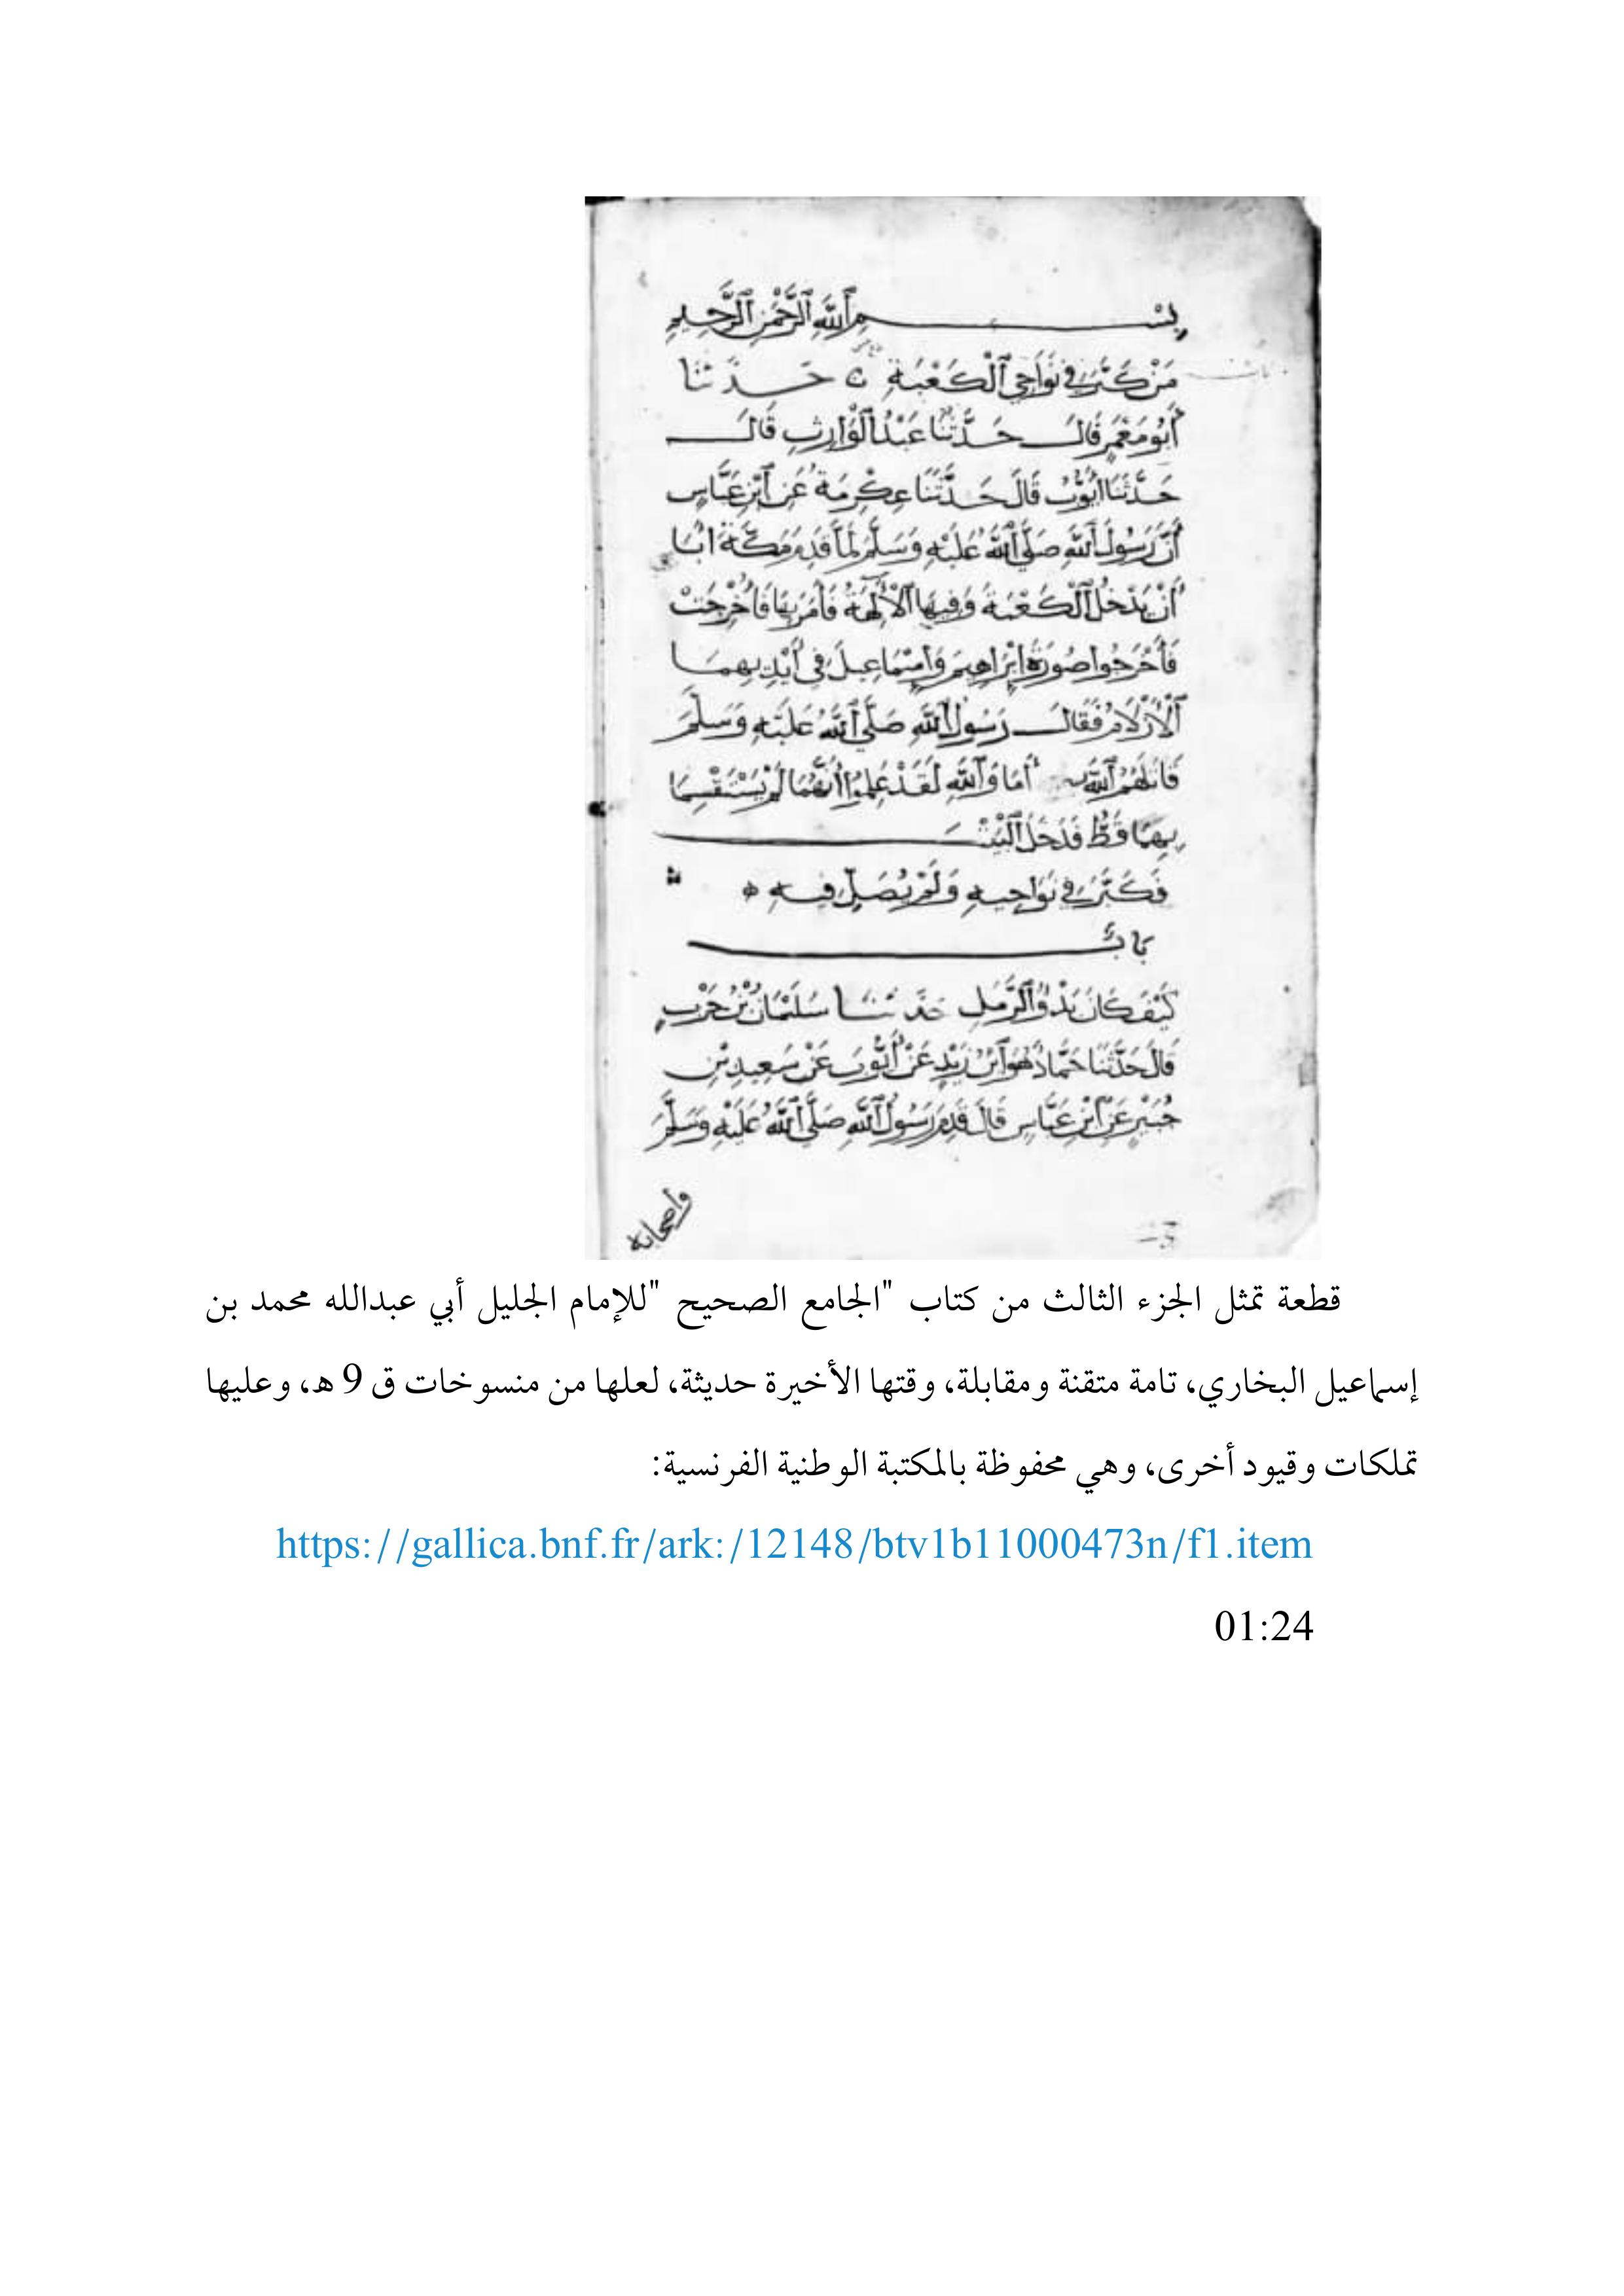 بِسْمِ ٱللَّهِ ٱلرَّحْمَٰنِ ٱلرَّحِيمِ
مَنْ كَبَّرَ فِي نَوَاحِي ٱلْكَعْبَةِ حَدَّثَنَا
أَبُو مَعْمَرٍ قَالَ حَدَّثَنَا عَبْدُ ٱلْوَارِثِ قَالَ
حَدَّثَنَا أَيُّوبُ قَالَ حَدَّثَنَا عِكْرِمَةُ عَنِ ٱبْنِ عَبَّاسٍ
أَنَّ رَسُولَ ٱللَّهِ صَلَّى ٱللَّهُ عَلَيْهِ وَسَلَّمَ لَمَّا قَدِمَ مَكَّةَ ابَا
أَنْ يَدْخُلَ ٱلْكَعْبَةَ وَفِيهَا ٱلْآلِهَةُ فَأَمَرَ بِهَا فَأُخْرِجَتْ
فَأَخْرَجُوا صُورَةَ إِبْرَاهِيمَ وَإِسْمَاعِيلَ فِي أَيْدِيهِمَا
ٱلْأَزْلَامُ فَقَالَ رَسُولُ ٱللَّهِ صَلَّى ٱللَّهُ عَلَيْهِ وَسَلَّمَ
قَاتَلَهُمُ ٱللَّهُ أَمَا وَٱللَّهِ لَقَدْ عَلِمُوا أَنَّهُمَا لَمْ يَسْتَقْسِمَا
بِهِمَا قَطُّ فَدَخَلَ ٱلْبَيْتَ
فَكَبَّرَ فِي نَوَاحِيهِ وَلَمْ يُصَلِّ فِيهِ
بَابٌ
كَيْفَ كَانَ بَدْؤُ ٱلرَّمَلِ حَدَّثَنَا سُلَيْمَانُ بْنُ حَرْبٍ
قَالَ حَدَّثَنَا حَمَّادٌ هُوَ ٱبْنُ زَيْدٍ عَنْ أَيُّوبَ عَنْ سَعِيدِ بْنِ
جُبَيْرٍ عَنِ ٱبْنِ عَبَّاسٍ قَالَ قَدِمَ رَسُولُ ٱللَّهِ صَلَّى ٱللَّهُ عَلَيْهِ وَسَلَّمَ
وأصحابه
قطعة تمثل الجزء الثالث من كتاب "الجامع الصحيح "للإمام الجليل أبي عبدالله محمد بن
إسماعيل البخاري، تامة متقنة ومقابلة، وقتها الأخيرة حديثة، لعلها من منسوخات ق 9 هـ، وعليها
تملكات وقيود أخرى، وهي محفوظة بالمكتبة الوطنية الفرنسية:
https://gallica.bnf.fr/ark:/12148/btv1b11000473n/f1.item
01:24